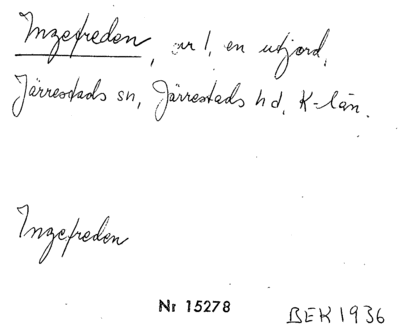 Ingefreden, nr 1, en utjord,
Järrestads sn, Järrestads hd, K-län.
Ingefreden
Nr 15278
BEK 1936